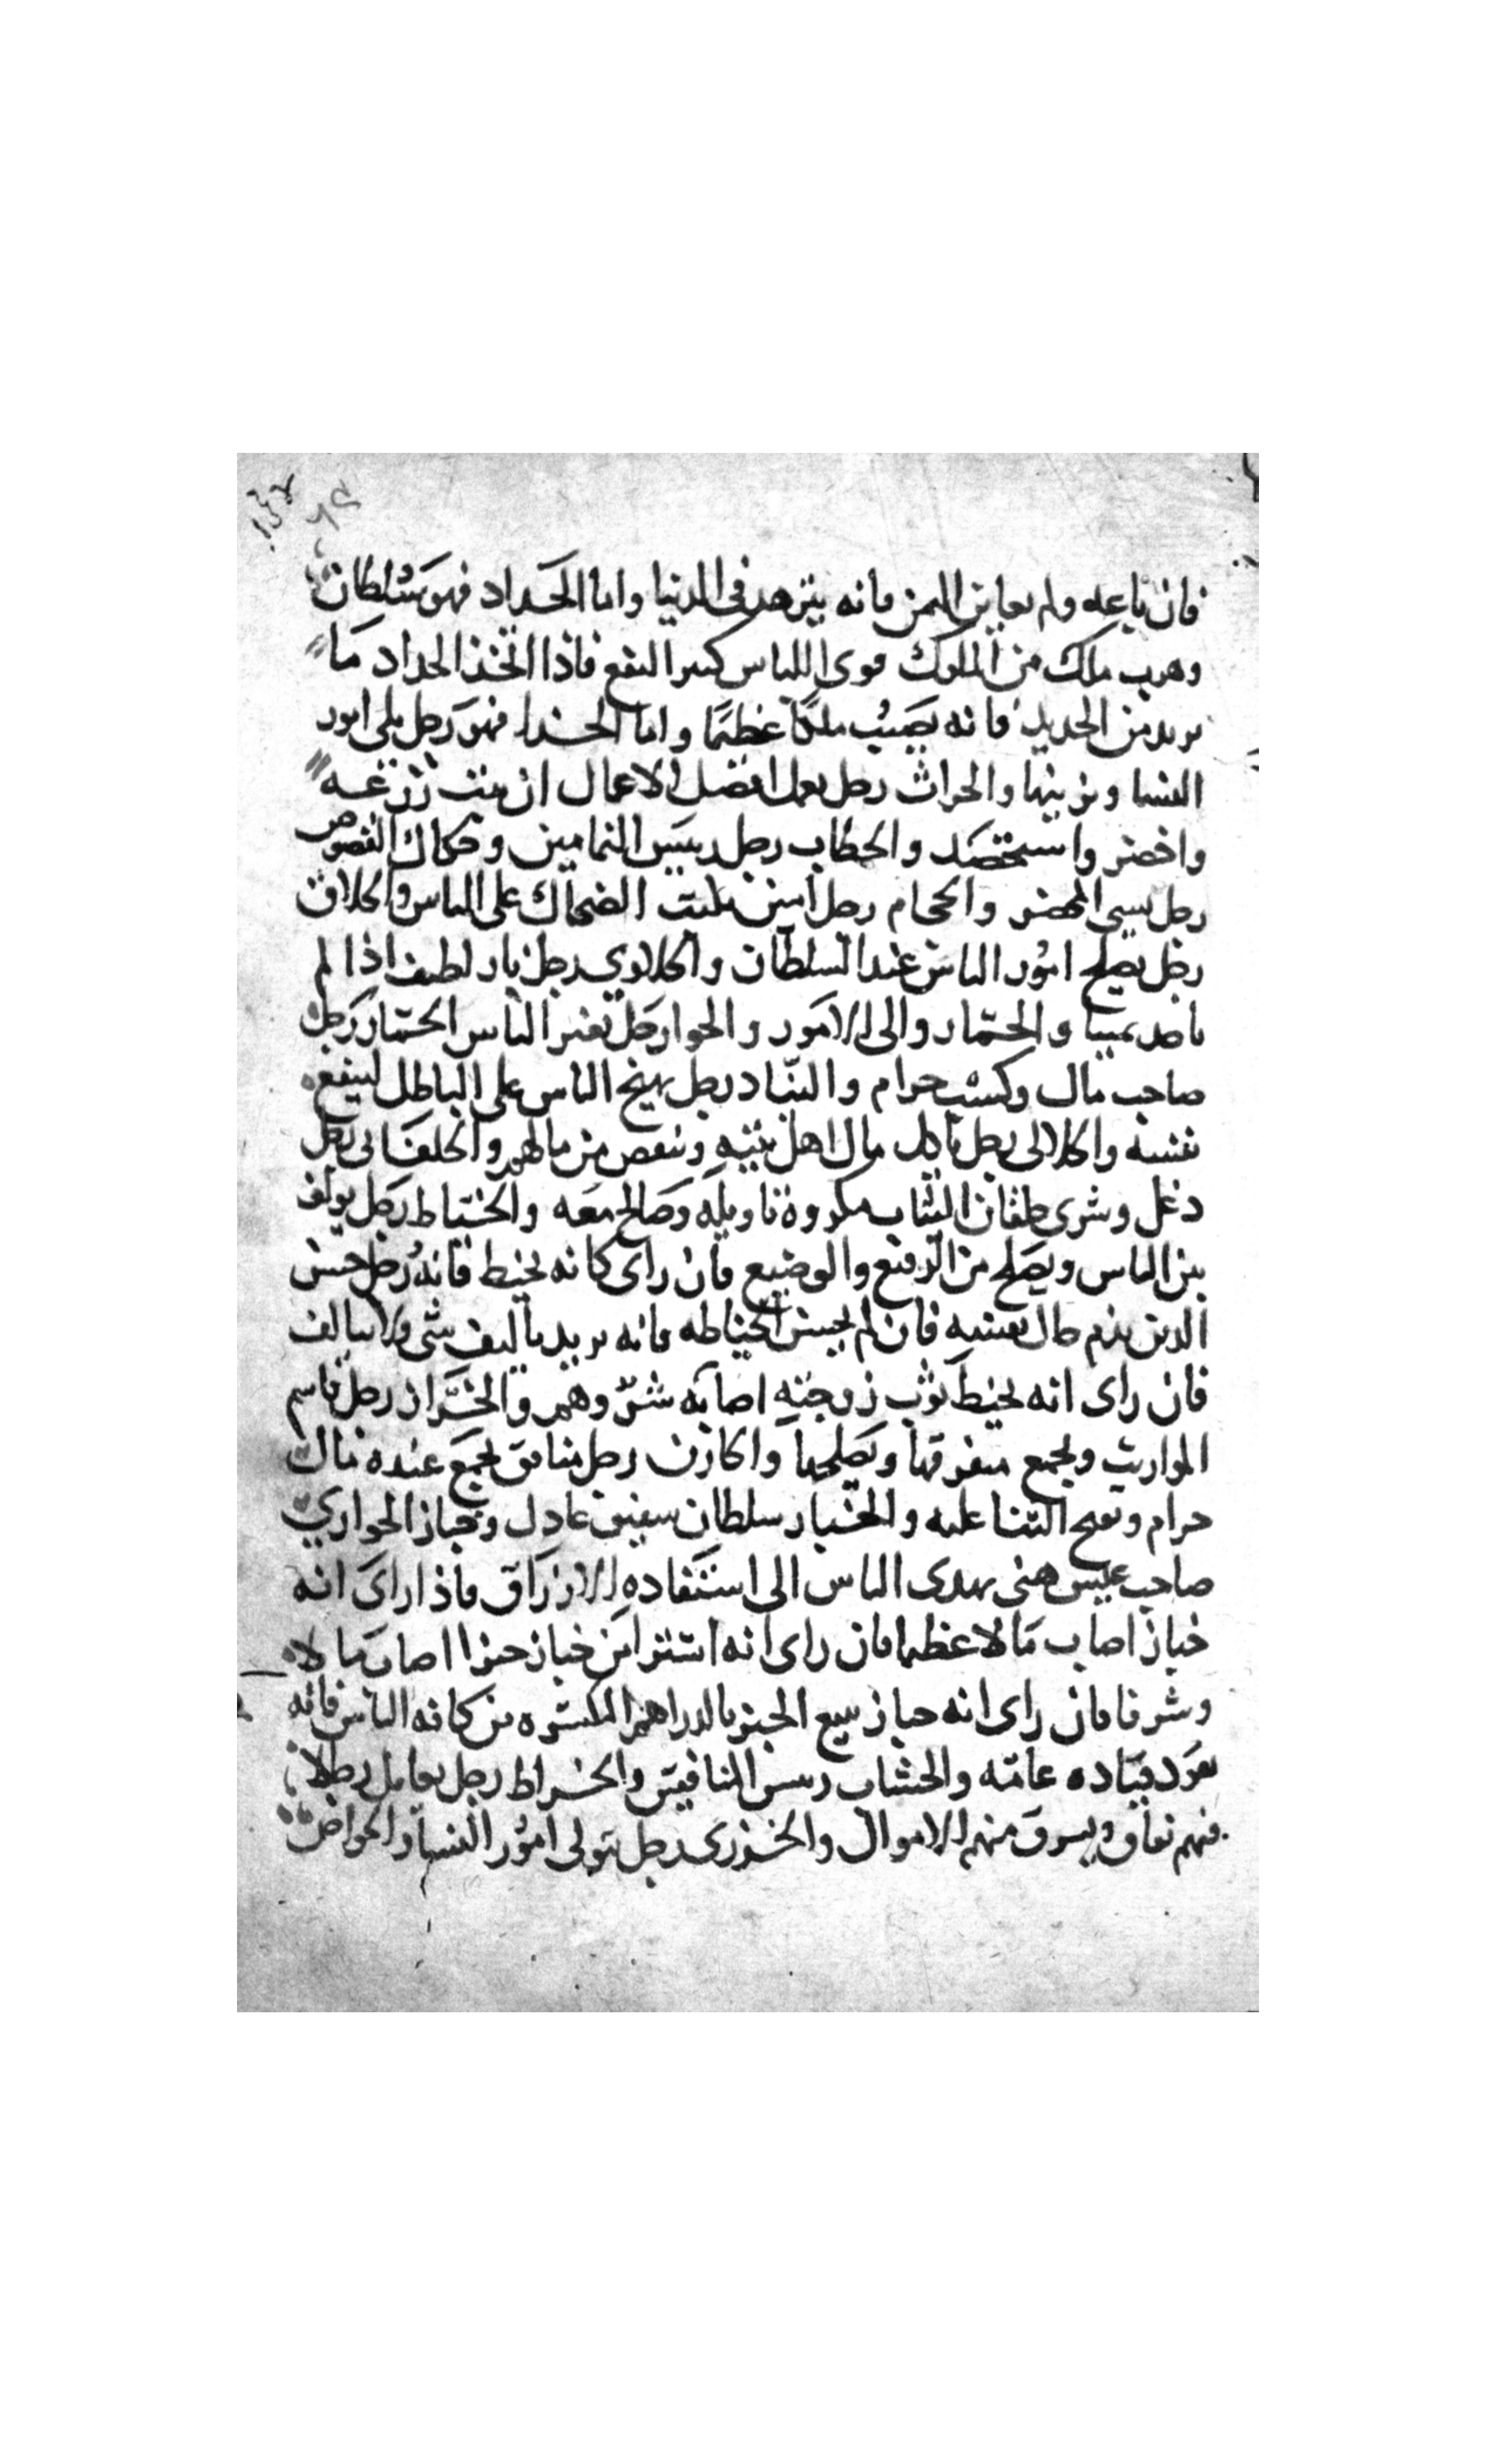 فان باعه ولم يعاين الثمن فانه يتزهد فى الدنيا واما الحداد فهو سلطان
وهرب ملك من الملوك قوى اللباس كبير النفع فاذا اتخذ الحداد ما
يريد من الحديد فانه يصيب ملكا عظيما واما الحذا فهو رجل يلى امور
النسا وتزيينها والحراث رجل يعمل افضل الاعمال ان نبت زرعه
واخضر واستحصد والحطاب رجل رييس النمامين وحكاك الفصوص
رجل يسيى المحضر والحجام رجل امين يثبت الضحاك على الناس والحلاق
رجل يصلح امور الناس عند السلطان والحلاوي رجل بار لطيف اذا لم
ياخد ثمينا والحمار والى الامور والحوا رجل يغير الناس الحمار رجل
صاحب مال وكسب حرام والنباد رجل يهيج الناس على الباطل لينفع
نفسه والحلالى رجل ياكل مال اهل بيته وينقص من مالهم والخلقانى رجل
دغل وشرى خلقان الثياب مكروه تاويله وصالح معه والخياط رجل يولف
بين الناس ويصلح من الرفيع والوضيع فان راى كانه يخيط فانه رجل حسن
الدين يذم حال نفسه فان لم يحسن الخياطه فانه يريد تاليف شى ولا يتالف
فان راى انه يخيط ثوب زوجته اصابه شر وهم والخراز رجل قاسم
المواريث ويجمع متفرقها ويصلحها والخازن رجل منافق يجمع عنده مال
حرام ويقبح الثنا عليه والخباز سلطان عادل وخباز الحوارى
صاحب عيش هنى يهدى الناس الى استفاده الارزاق فاذا راى انه
خباز اصاب مالا عظيما فان راى انه اشترا من خباز خبزا اصاب مالا
وشرفا فان راى انه خباز يبيع الخبز بالدراهم المكسره من كافه الناس فانه
يعود قياده عامه والخشاب رييس المنافقين والخراط رجل يعامل رجالا
فيهم نفاق ويسرق منهم الاموال والخزرى رجل يتولى امور النسا والخواص